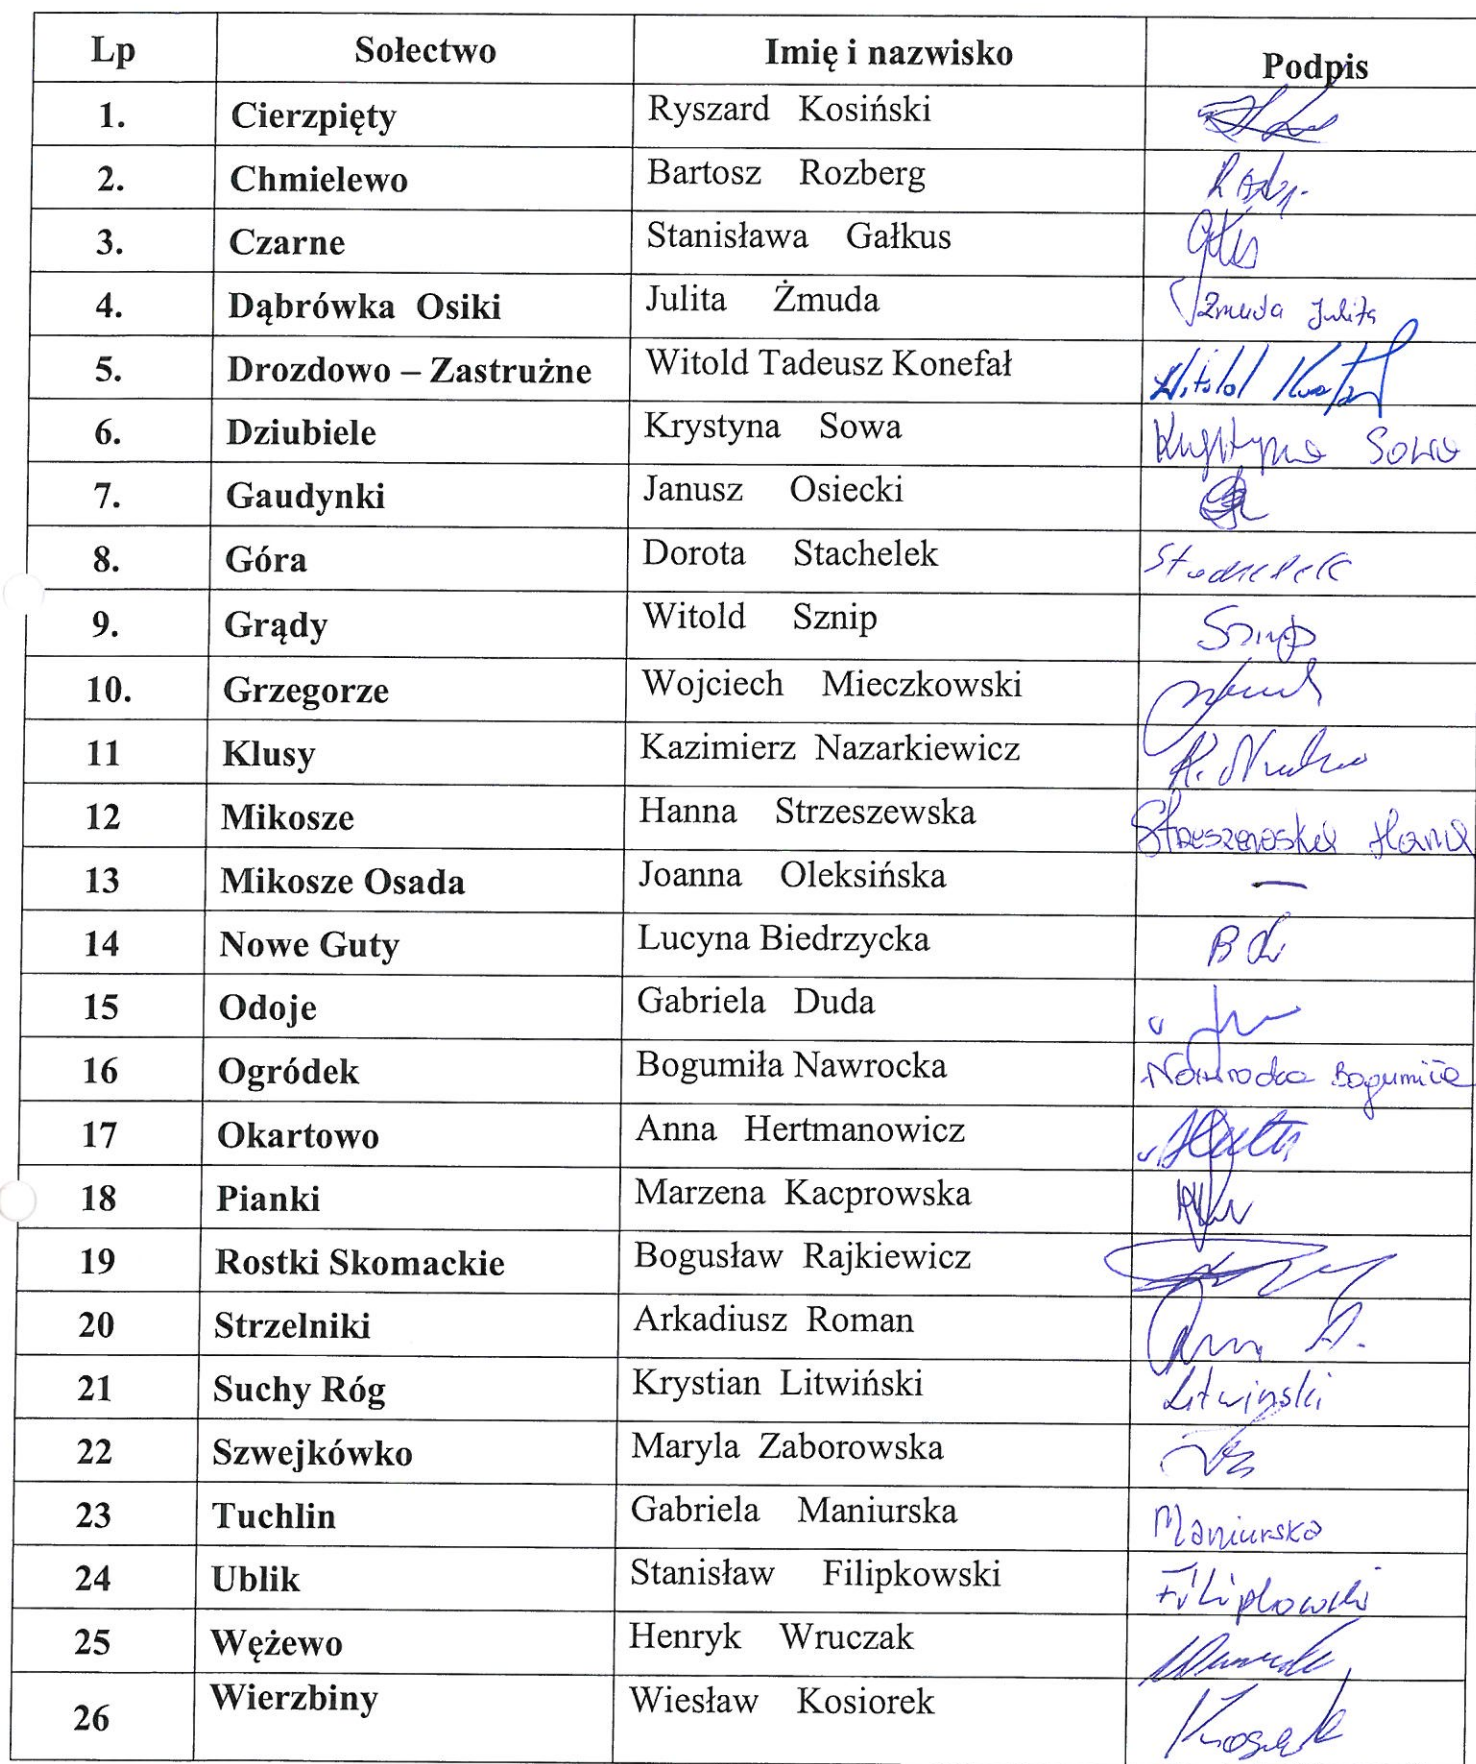 Lp Sołectwo Imię i nazwisko Podpis
1. Cierzpięty Ryszard Kosiński
2. Chmielewo Bartosz Rozberg
3. Czarne Stanisława Gałkus
4. Dąbrówka Osiki Julita Żmuda Żmuda Julita
5. Drozdowo – Zastrużne Witold Tadeusz Konefał Witold
6. Dziubiele Krystyna Sowa Krystyna Sowa
7. Gaudynki Janusz Osiecki
8. Góra Dorota Stachelek Stachelek
9. Grądy Witold Sznip Sznip
10. Grzegorze Wojciech Mieczkowski
11 Klusy Kazimierz Nazarkiewicz
12 Mikosze Hanna Strzeszewska Strzeszewska Hanna
13 Mikosze Osada Joanna Oleksińska —
14 Nowe Guty Lucyna Biedrzycka
15 Odoje Gabriela Duda
16 Ogródek Bogumiła Nawrocka Nawrocka Bogumiła
17 Okartowo Anna Hertmanowicz
18 Pianki Marzena Kacprowska
19 Rostki Skomackie Bogusław Rajkiewicz
20 Strzelniki Arkadiusz Roman
21 Suchy Róg Krystian Litwiński Litwinski
22 Szwejkówko Maryla Zaborowska
23 Tuchlin Gabriela Maniurska Maniurska
24 Ublik Stanisław Filipkowski Filipkowski
25 Wężewo Henryk Wruczak
26 Wierzbiny Wiesław Kosiorek